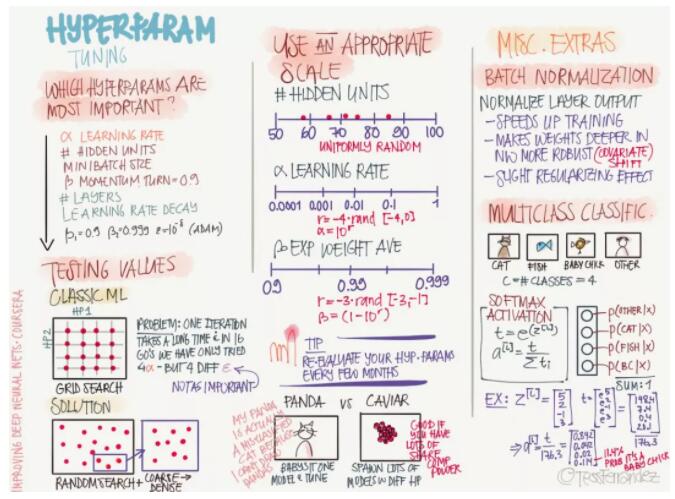 HYPERPARAM
TUNING
WHICH HYPERPARAMS ARE
MOST IMPORTANT?
α LEARNING RATE
# HIDDEN UNITS
MINIBATCH SIZE
β MOMENTUM TURN=0.9
# LAYERS
LEARNING RATE DECAY
β₁=0.9 β₂=0.999 ε=10⁻⁸ (ADAM)
TESTING VALUES
CLASSIC ML
HP1
HP2
GRID SEARCH
PROBLEM: ONE ITERATION
TAKES A LONG TIME & IN 16
GO'S WE HAVE ONLY TRIED
4α - BUT 4 DIFF ε
NOT AS IMPORTANT
SOLUTION
RANDOM SEARCH + COARSE → DENSE
IMPROVING DEEP NEURAL NETS · COURSERA
USE AN APPROPRIATE
SCALE
# HIDDEN UNITS
50 60 70 80 90 100
UNIFORMLY RANDOM
α LEARNING RATE
0.0001 0.001 0.01 0.1 1
r=-4·rand [-4,0]
α=10ʳ
β EXP WEIGHT AVE
0.9 0.99 0.999
r=-3·rand [-3,-1]
β=(1-10ʳ)
TIP
RE-EVALUATE YOUR HYP. PARAMS
EVERY FEW MONTHS
PANDA VS CAVIAR
MY PANDA
IS ACTUALLY
A MISCLASSIFIED
CAT BECAUSE
I CAN'T DRAW
PANDAS
BABYSIT ONE
MODEL & TUNE
GOOD IF
YOU HAVE
LOTS OF
SHARE
COMP
POWER
SPAWN LOTS OF
MODELS W DIFF HP
MISC. EXTRAS
BATCH NORMALIZATION
NORMALIZE LAYER OUTPUT
- SPEEDS UP TRAINING
- MAKES WEIGHTS DEEPER IN
NW MORE ROBUST (COVARIATE)
SHIFT
- SLIGHT REGULARIZING EFFECT
MULTICLASS CLASSIFIC.
CAT FISH BABY CHICK OTHER
C = # CLASSES = 4
SOFTMAX
ACTIVATION
t = e^(z^[L])
a^[L] = t / Σtᵢ
p(OTHER|X)
p(CAT|X)
p(FISH|X)
p(BC|X)
SUM: 1
EX: z^[L] = [5 2 -1 3] t = [e⁵ e² e⁻¹ e³] = [148.4 7.4 0.4 20.1]
176.3
⇒ a^[L] = t / 176.3 = [0.842 0.042 0.02 0.114]
11.4%
PROB IT'S A
BABY CHICK
©TessFerrandez